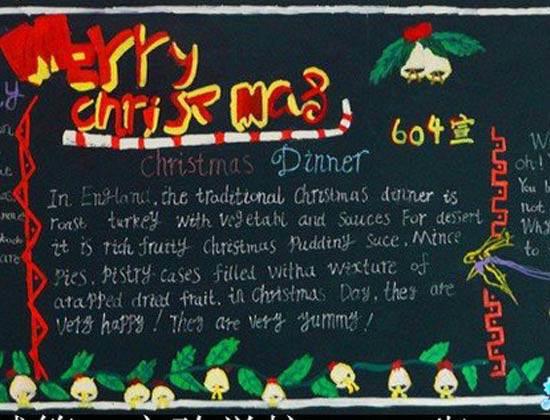 Merry
christmas
604宣
Christmas Dinner
In England, the traditional Christmas dinner is
roast turkey with vegetabl and sauces For dessert
it is rich fruity Christmas Pudding Suce, Mince
Pies, Pistry cases filled witha wixture of
arapped dried fruit. in Christmas Day, they are
very happy! They are very yummy!
oh!
You
not
Why
to
are